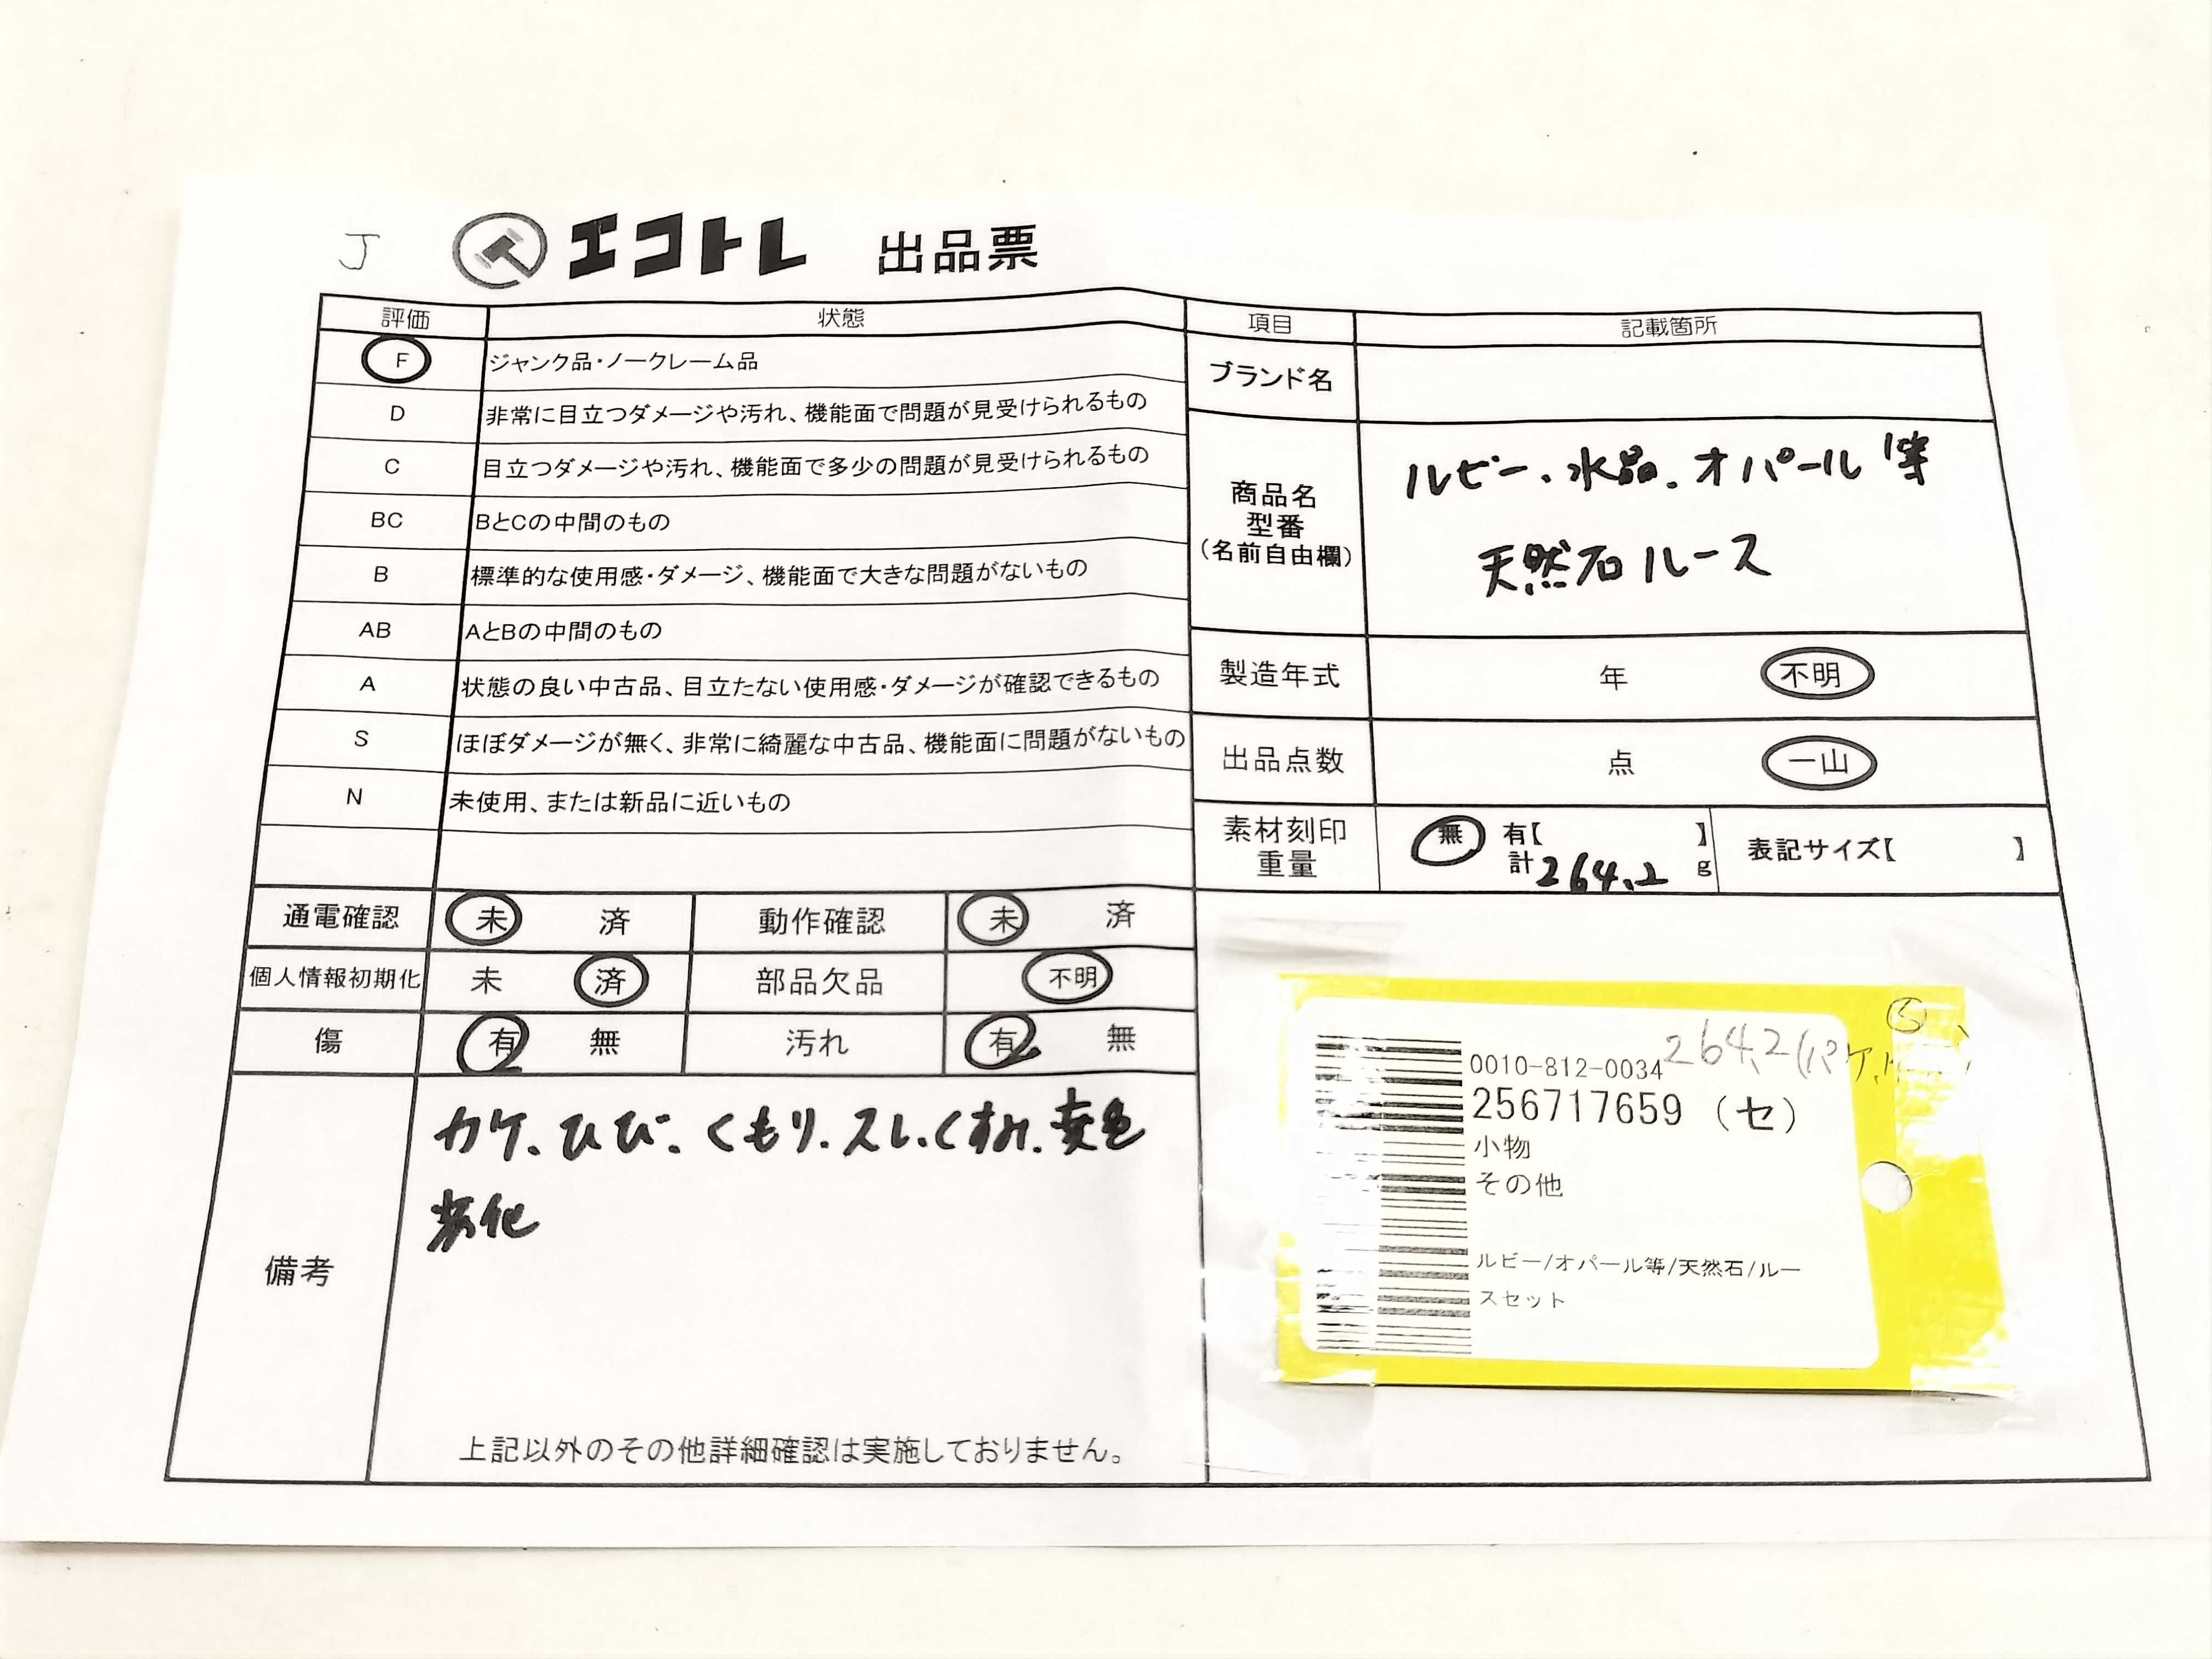 J エコトレ 出品票
評価 状態
F ジャンク品・ノークレーム品
D 非常に目立つダメージや汚れ、機能面で問題が見受けられるもの
C 目立つダメージや汚れ、機能面で多少の問題が見受けられるもの
BC BとCの中間のもの
B 標準的な使用感・ダメージ、機能面で大きな問題がないもの
AB AとBの中間のもの
A 状態の良い中古品、目立たない使用感・ダメージが確認できるもの
S ほぼダメージが無く、非常に綺麗な中古品、機能面に問題がないもの
N 未使用、または新品に近いもの
項目 記載箇所
ブランド名
商品名
型番
(名前自由欄)
ルビー、水晶、オパール等
天然石ルース
製造年式 年 不明
出品点数 点 一山
素材刻印
重量
無 有【 】
計264.2 g
表記サイズ【 】
通電確認 未 済 動作確認 未 済
個人情報初期化 未 済 部品欠品 不明
傷 有 無 汚れ 有 無
備考
カケ、ひび、くもり、スレ、くすみ、変色
劣化
上記以外のその他詳細確認は実施しておりません。
264.2
0010-812-0034
256717659 (セ)
小物
その他
ルビー/オパール等/天然石/ルー
スセット